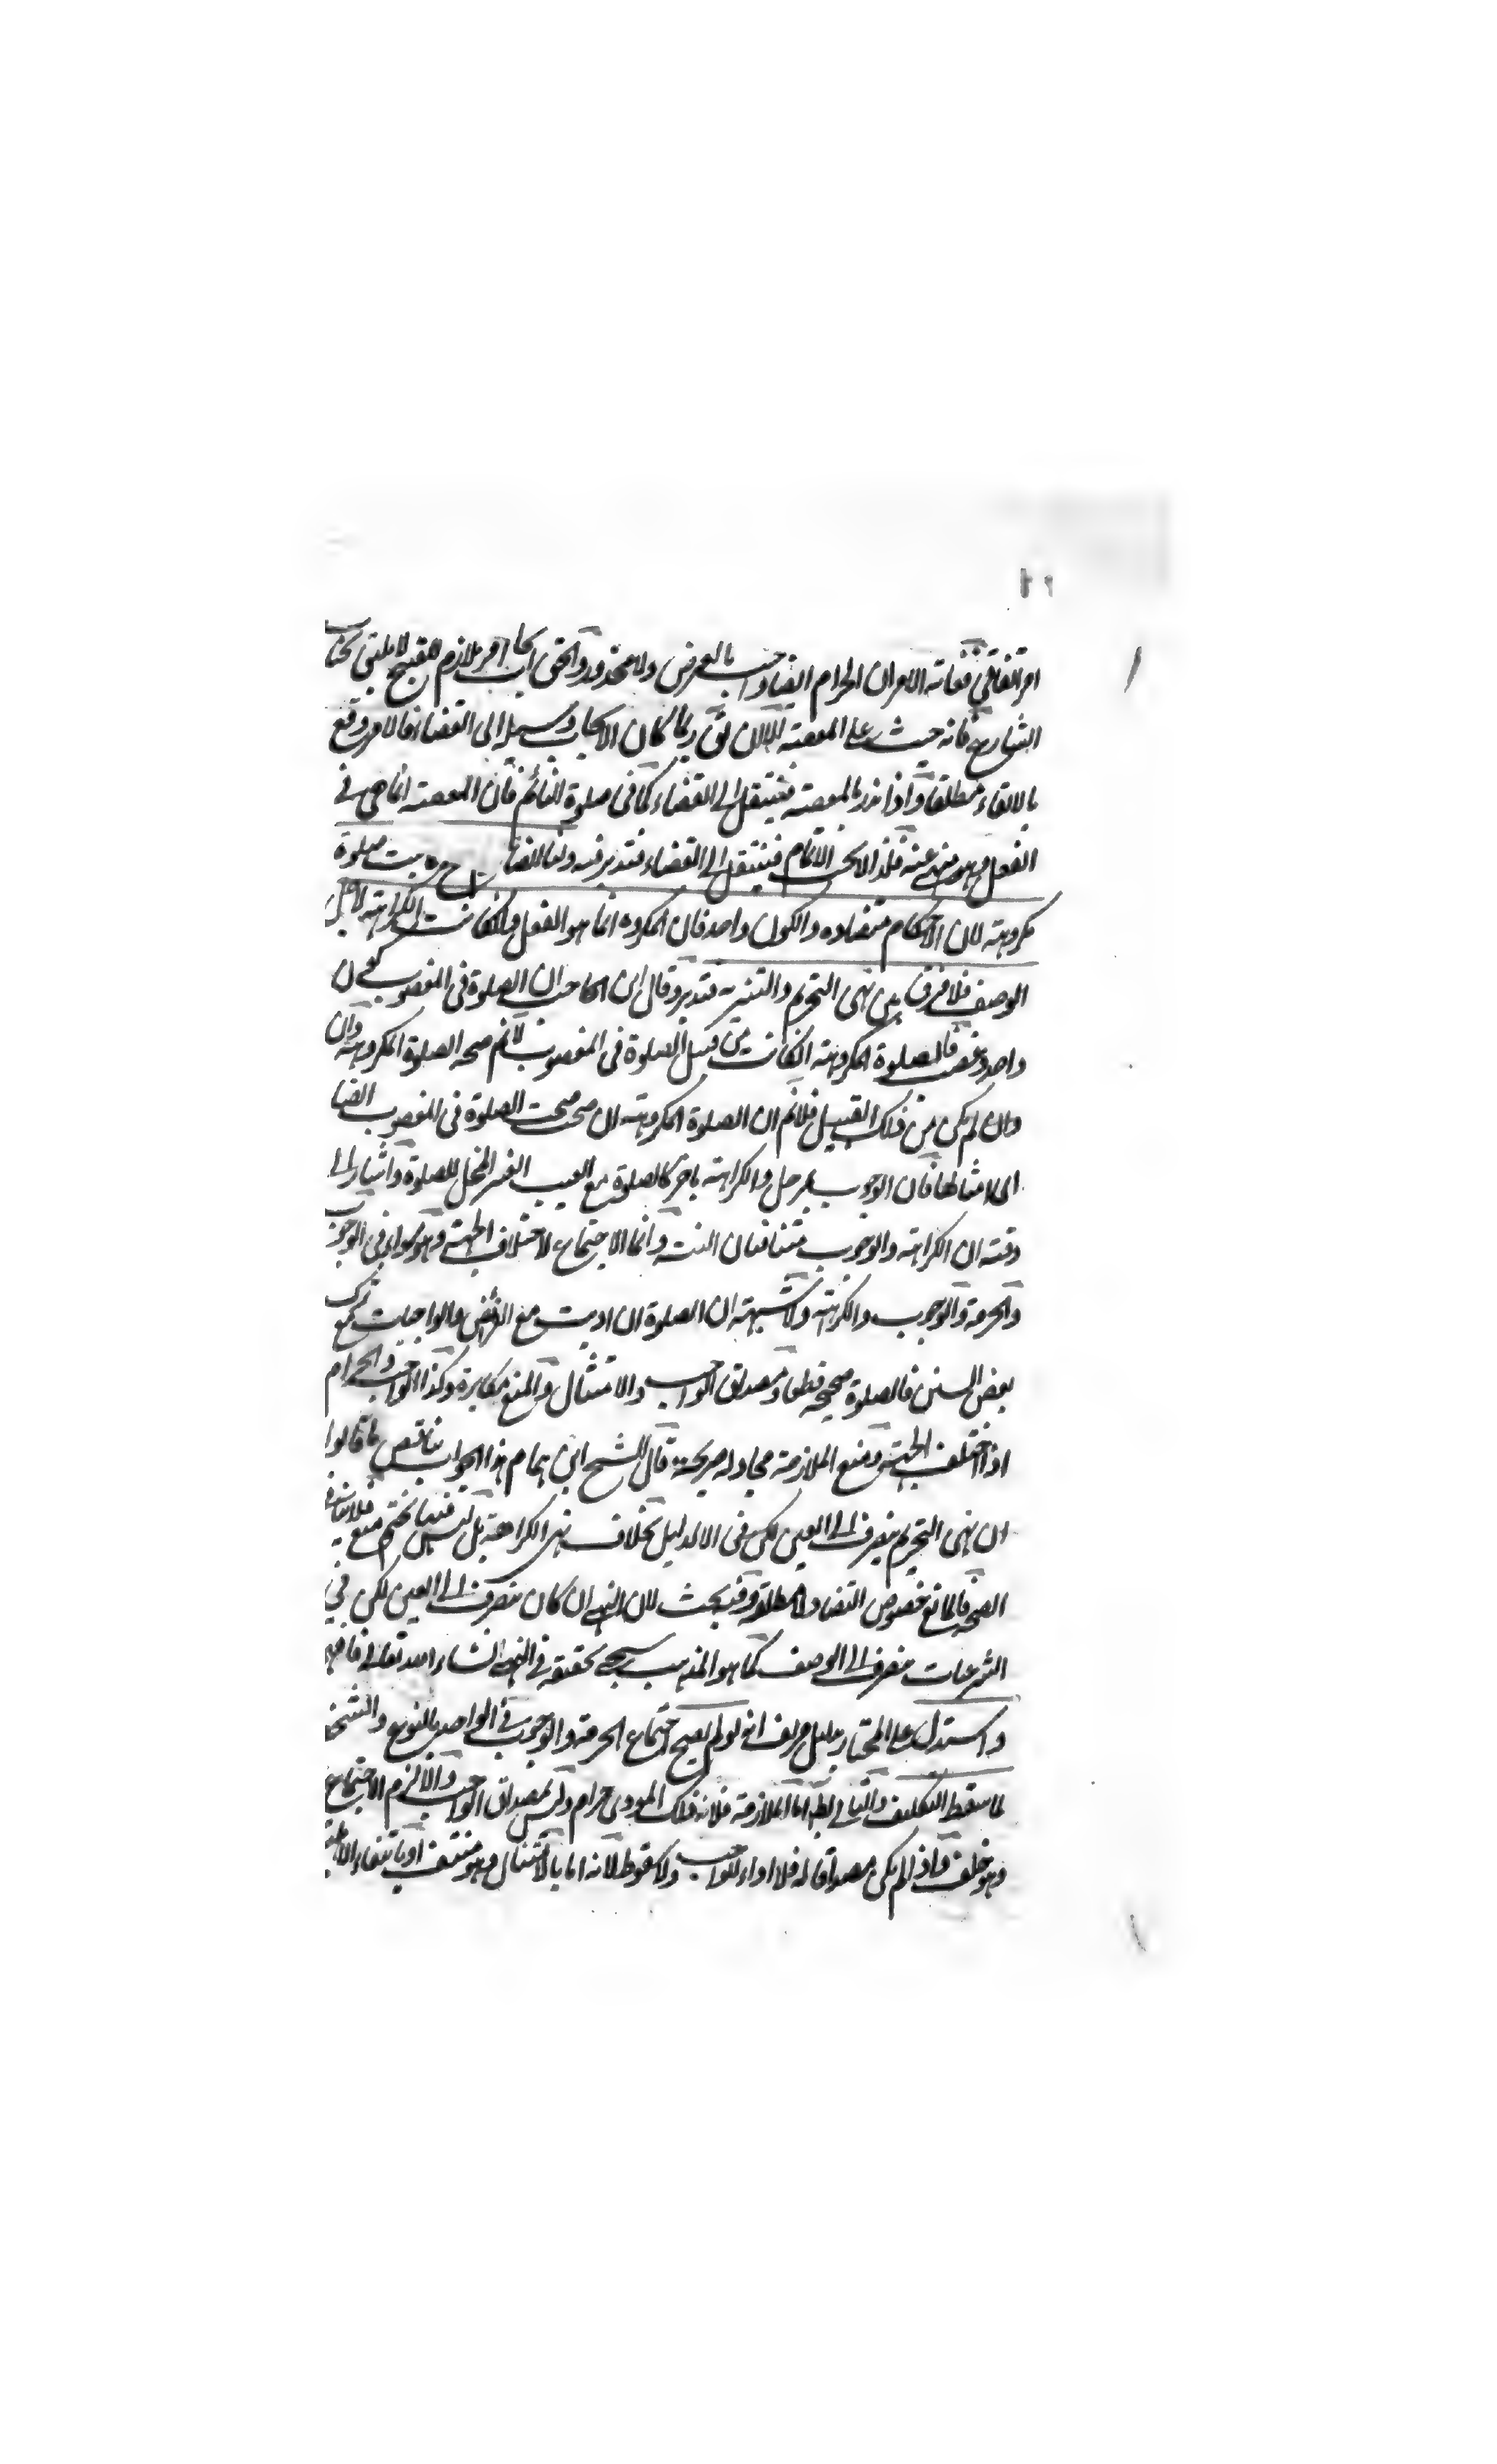 امر اتفاقي فغاية الامر ان الحرام ايضا واجب بالعرض ولا محذور والحق ان ايجاب امر ملازم للقبيح لا يليق بجناب
الشارع فانه حيث على المعصية الا ان يق ربما كان الايجاب وسيلة الى القضاء فالامر وقع
بالايقاء مطلقا واذا نذر بالمعصية فينتقل الى القضاء كما في صلوة النائم فان المعصية انما هي في
الفعل وهو منهي عنه فلذا لا يجب الاتمام فينتقل الى القضاء فتدبر فيه ولنا ايضا صلوة
مكروهة لان الاحكام متضادة والكون واحد فان المكروه انما هو الفعل وان كانت الكراهة لاجل
الوصف فلا فرق بين نهي التحريم والتنزيه فتدبر وقال ابن الحاجب ان الصلوة في المغصوب كون
واحد وغصب فالصلوة المكروهة ان كانت من قبيل الصلوة في المغصوب لانم صحة الصلوة المكروهة وان
وان لم يكن من ذلك القبيل فلانم ان الصلوة المكروهة ان صحت صحت الصلوة في المغصوب ايضا
اي لا مثالها فان الوجوب بمرحل والكراهة باخر كالصلوة مع العيب الغير المخل للصلوة واشار الى
دفعه ان الكراهة والوجوب متنافيان البتة وانما الاجتماع لاختلاف الجهة وهو سواء في الوجوب
والحرمة والوجوب والكراهة ولا شبهة ان الصلوة ان اديت مع الفرائض والواجبات مع ترك
بعض السنن فالصلوة صحيحة قطعا ومصداق الواجب والامتثال والمنع مكابرة وكذا الواجب والحرام
اذا اختلف الجهة ومنع الملازمة مجادلة صريحة قال الشيخ ابن همام هذا الجواب يناقض ما قالوا
ان نهي التحريم ينصرف الى العين لكن في الا لدليل بخلاف نهي الكراهة بل ليس فيها تحتم منع فلا ينافي
الصحة فالمانع خصوص التضاد لا مطلقه وفيه بحث لان النهي ان كان منصرف الى العين لكن في
الشرعيات منصرف الى الوصف كما هو المذهب سيجيء تحقيقه في النهي انشاء الله تعالى فافهم
واستدل على المختار بدليل مزيف انه لو لم يصح اجتماع الحرمة والوجوب في الواحد بالنوع والشخص
لما سقط التكليف والتالي بط اما الملازمة فلانه ذلك المودى حرام وليس مصداق الواجب والا لزم الاجتماع
وهو خلف واذ لم يكن مصداقا له فلا اداء للواجب ولا سقوط لانه اما بالامتثال وهو منتف او بانتفاء الاهلية